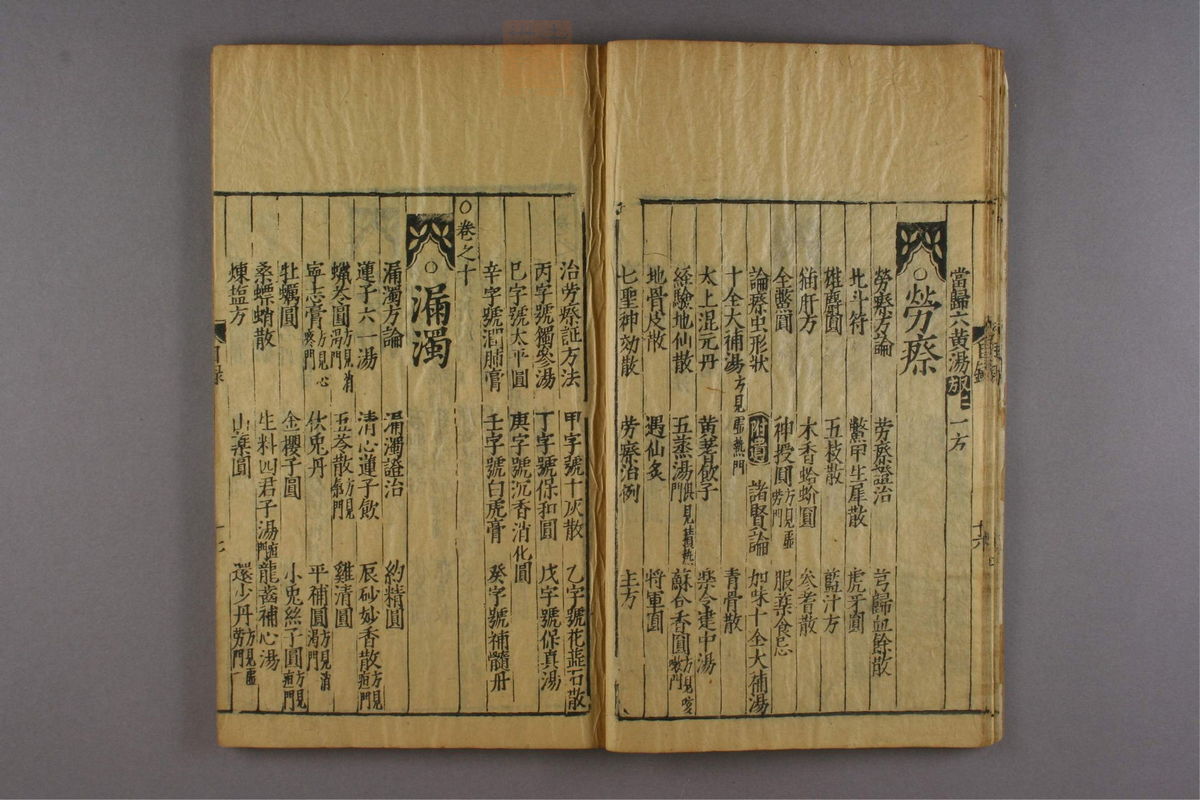 當歸六黃湯 一方
勞瘵
勞瘵方論 勞瘵證治 芎歸血餘散
北斗符 鱉甲生犀散 虎牙圓
雄麝圓 五枝散 藍汁方
獺肝方 木香蛤蚧圓 參耆散
全鱉圓 神授圓方見虛勞門 服藥食忌
論瘵虫形狀 附遺 諸賢論 加味十全大補湯
十全大補湯方見虛熱門 青骨散
太上混元丹 黃耆飲子 樂令建中湯
經驗地仙散 五蒸湯俱見積熱門 蘇合香圓方見咳嗽門
地骨皮散 遇仙灸 將軍圓
七聖神効散 勞瘵治例 主方
治勞瘵証方法 甲字號十灰散 乙字號花蕋石散
丙字號獨參湯 丁字號保和圓 戊字號保真湯
巳字號太平圓 庚字號沉香消化圓
辛字號潤肺膏 壬字號白虎膏 癸字號補髓丹
○卷之十
漏濁
漏濁方論 漏濁證治 約精圓
蓮子六一湯 清心蓮子飲 辰砂妙香散方見疸門
蠟苓圓方見消渴門 五苓散方見門 雞清圓
寧志膏方見心門 伏兎丹 平補圓方見消渴門
牡蠣圓 金櫻子圓 小兎絲子圓方見疸門
桑螵蛸散 生料四君子湯 龍齒補心湯
煉塩方 山藥圓 還少丹方見虛勞門